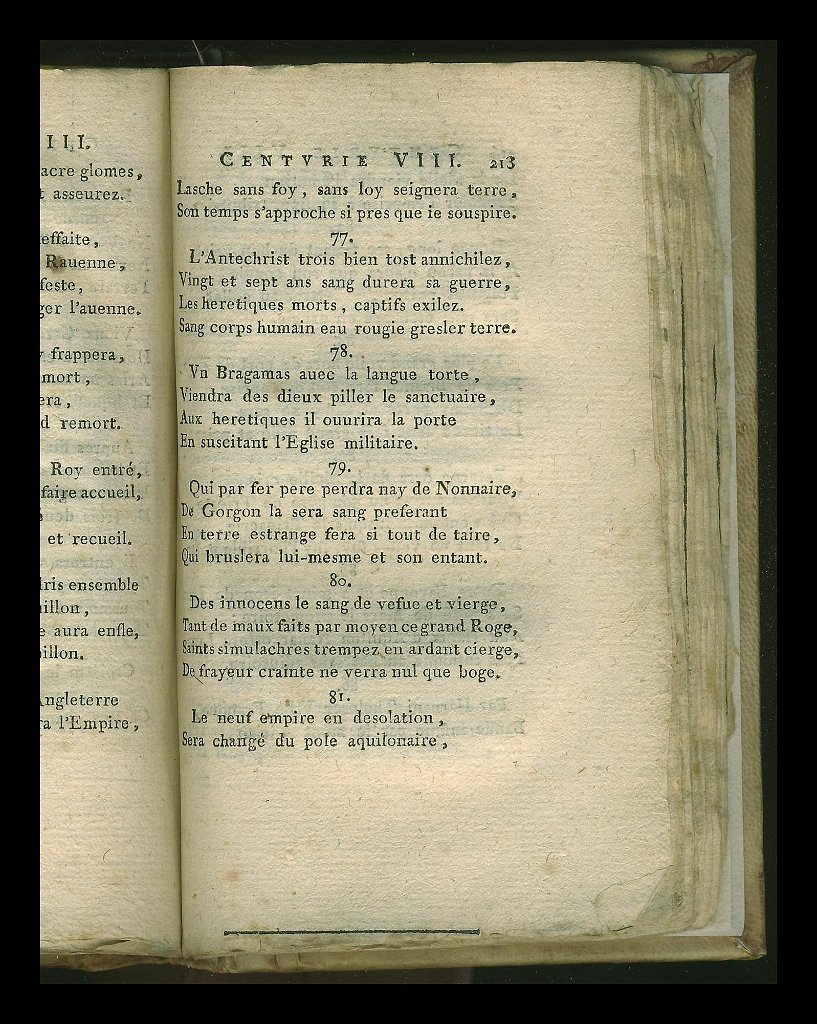 III.
acre glomes,
asseurez.
effaite,
Rauenne,
feste,
ger l'auenne.
frappera,
mort,
era,
d remort.
Roy entré,
faire accueil,
et recueil.
iris ensemble
illon,
e aura enfle,
illon.
Angleterre
ra l'Empire,
CENTVRIE VIII. 213
Lasche sans foy, sans loy seignera terre,
Son temps s'approche si pres que ie souspire.
77.
L'Antechrist trois bien tost annichilez,
Vingt et sept ans sang durera sa guerre,
Les heretiques morts, captifs exilez.
Sang corps humain eau rougie gresler terre.
78.
Vn Bragamas auec la langue torte,
Viendra des dieux piller le sanctuaire,
Aux heretiques il ouurira la porte
En suscitant l'Eglise militaire.
79.
Qui par fer pere perdra nay de Nonnaire,
De Gorgon la sera sang preferant
En terre estrange fera si tout de taire,
Qui bruslera lui-mesme et son entant.
80.
Des innocens le sang de vefue et vierge,
Tant de maux faits par moyen ce grand Roge,
Saints simulachres trempez en ardant cierge,
De frayeur crainte ne verra nul que boge.
81.
Le neuf empire en desolation,
Sera changé du pole aquilonaire,